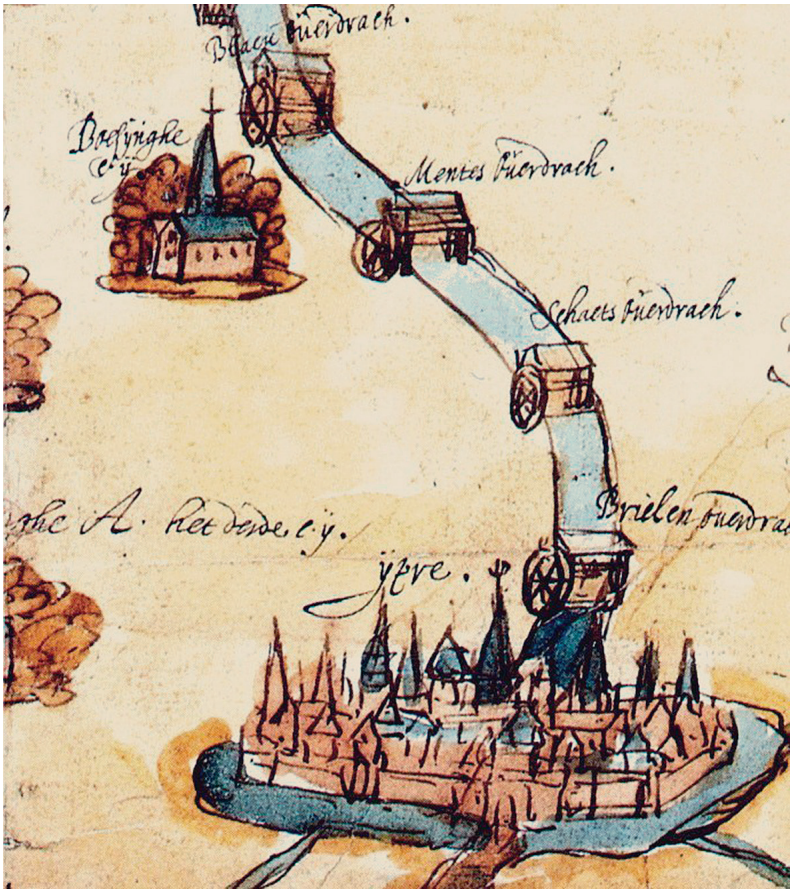 Blaeu ouerdrach.
Boesÿnghe
Mentes ouerdrach.
Schaets ouerdrach.
Brielen ouerdrac
ghe A. het derde. c. y.
ÿpre.